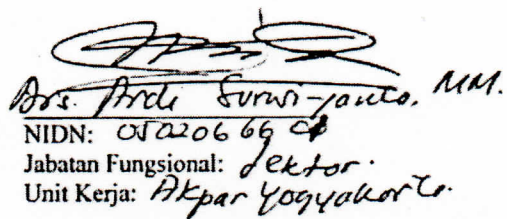 Drs. Prde Surwi-yanto, MM.
NIDN:
Jabatan Fungsional: Lektor.
Unit Kerja: Akpar Yogyakarta.